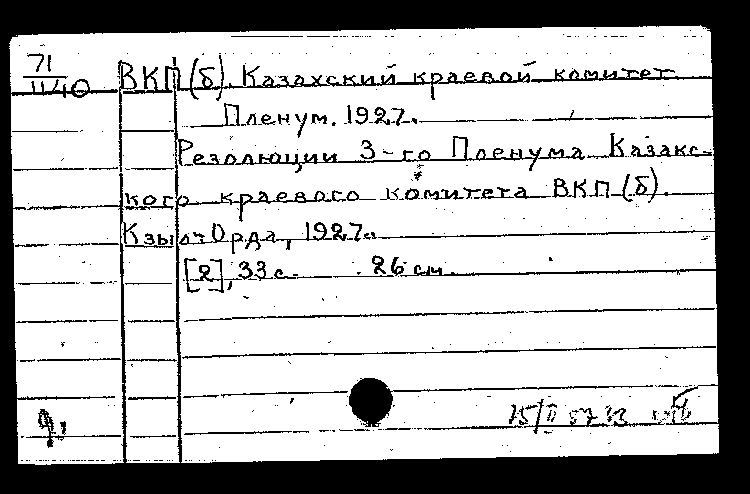 71
1140
ВКП(б). Казахский краевой комитет
Пленум. 1927.
Резолюции 3-го Пленума Казакс-
кого краевого комитета ВКП(б).
Кзыл-Орда, 1927.
[2], 33 с. 26 см.
15/II 57